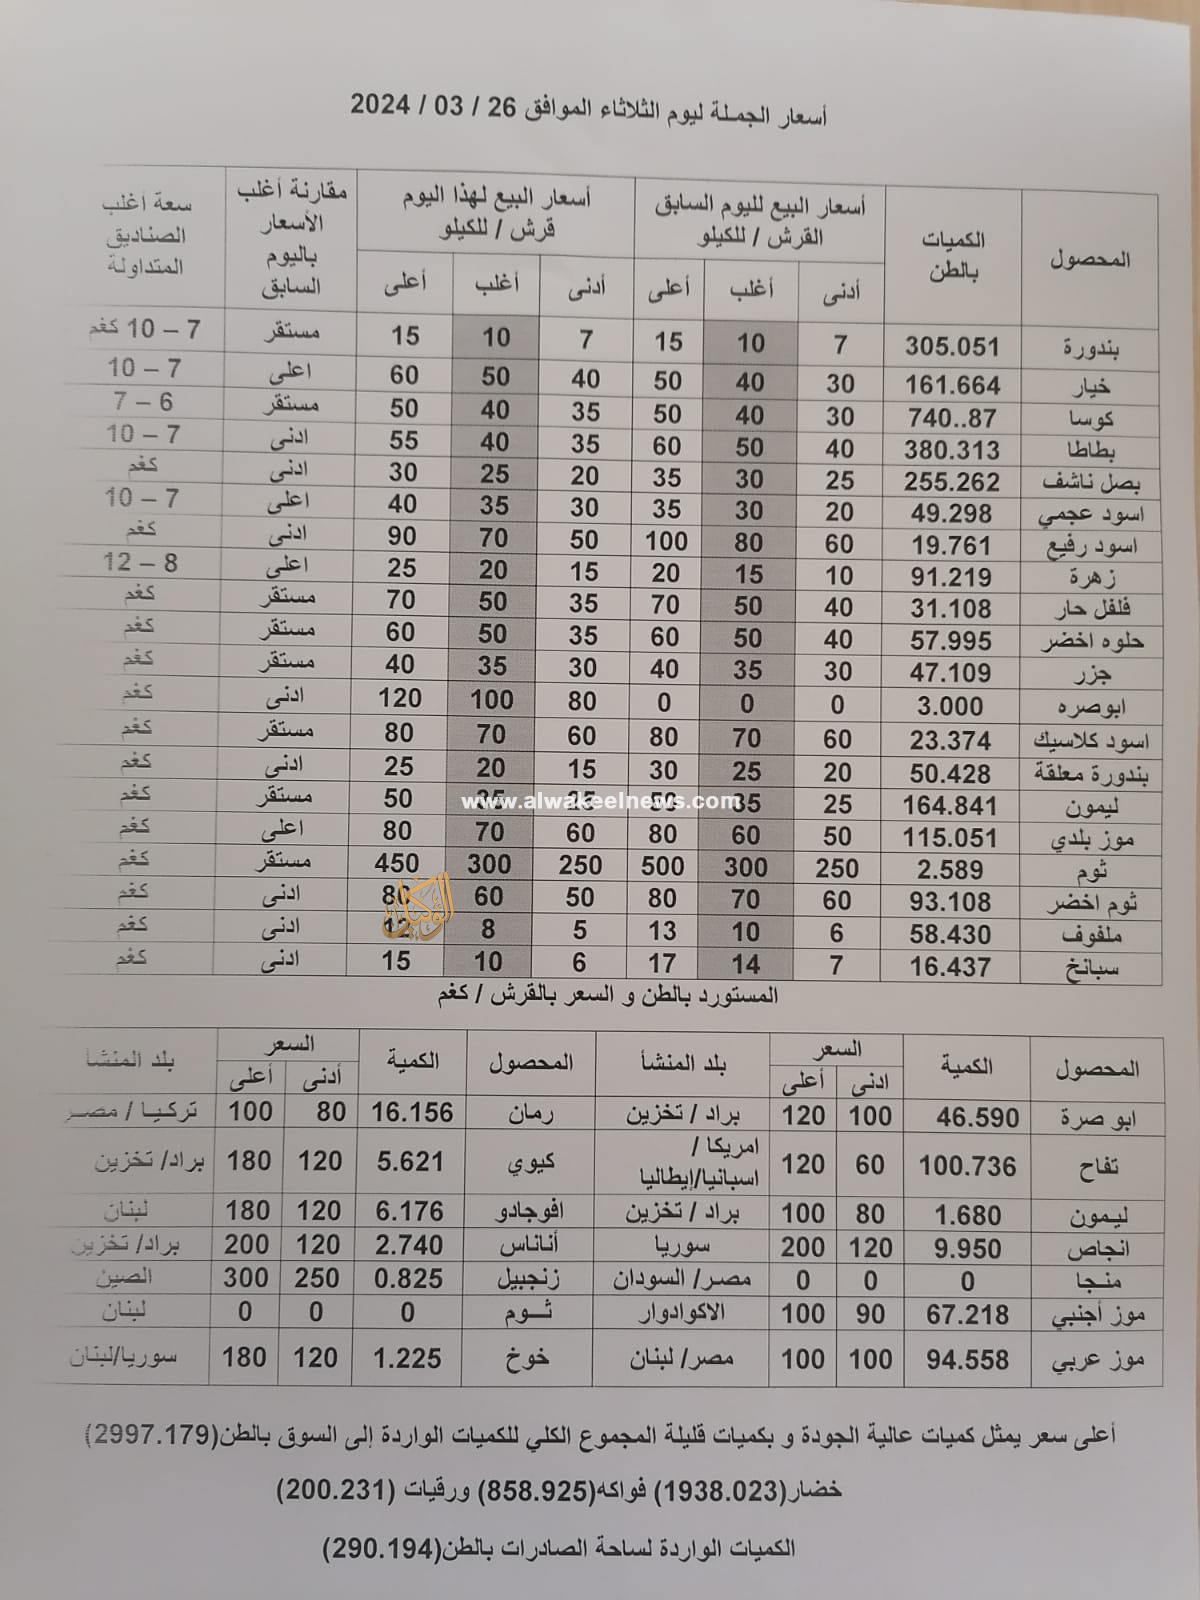 أسعار الجملة ليوم الثلاثاء الموافق 26 / 03 / 2024
المحصول الكميات بالطن أسعار البيع لليوم السابق القرش / للكيلو أسعار البيع لهذا اليوم قرش / للكيلو مقارنة أغلب الأسعار باليوم السابق سعة أغلب الصناديق المتداولة
أدنى أغلب أعلى أدنى أغلب أعلى
بندورة 305.051 7 10 15 7 10 15 مستقر 7 – 10 كغم
خيار 161.664 30 40 50 40 50 60 اعلى 7 – 10
كوسا 740..87 30 40 50 35 40 50 مستقر 6 – 7
بطاطا 380.313 40 50 60 35 40 55 ادنى 7 – 10
بصل ناشف 255.262 25 30 35 20 25 30 ادنى كغم
اسود عجمي 49.298 20 30 35 30 35 40 اعلى 7 – 10
اسود رفيع 19.761 60 80 100 50 70 90 ادنى كغم
زهرة 91.219 10 15 20 15 20 25 اعلى 8 – 12
فلفل حار 31.108 40 50 70 35 50 70 مستقر كغم
حلوه اخضر 57.995 40 50 60 35 50 60 مستقر كغم
جزر 47.109 30 35 40 30 35 40 مستقر كغم
ابوصره 3.000 0 0 0 80 100 120 ادنى كغم
اسود كلاسيك 23.374 60 70 80 60 70 80 مستقر كغم
بندورة معلقة 50.428 20 25 30 15 20 25 ادنى كغم
ليمون 164.841 25 35 50 25 35 50 مستقر كغم
www.alwakeelnews.com
موز بلدي 115.051 50 60 80 60 70 80 اعلى كغم
ثوم 2.589 250 300 500 250 300 450 مستقر كغم
ثوم اخضر 93.108 60 70 80 50 60 80 ادنى كغم
الوكيل
ملفوف 58.430 6 10 13 5 8 12 ادنى كغم
سبانخ 16.437 7 14 17 6 10 15 ادنى كغم
المستورد بالطن و السعر بالقرش / كغم
المحصول الكمية السعر بلد المنشأ المحصول الكمية السعر بلد المنشأ
ادنى أعلى أدنى أعلى
ابو صرة 46.590 100 120 براد / تخزين رمان 16.156 80 100 تركيا / مصر
تفاح 100.736 60 120 امريكا / اسبانيا/إيطاليا كيوي 5.621 120 180 براد/ تخزين
ليمون 1.680 80 100 براد / تخزين افوجادو 6.176 120 180 لبنان
انجاص 9.950 120 200 سوريا أناناس 2.740 120 200 براد/ تخزين
منجا 0 0 0 مصر/ السودان زنجبيل 0.825 250 300 الصين
موز أجنبي 67.218 90 100 الاكوادوار ثوم 0 0 0 لبنان
موز عربي 94.558 100 100 مصر/ لبنان خوخ 1.225 120 180 سوريا/لبنان
أعلى سعر يمثل كميات عالية الجودة و بكميات قليلة المجموع الكلي للكميات الواردة إلى السوق بالطن(2997.179)
خضار(1938.023) فواكه(858.925) ورقيات (200.231)
الكميات الواردة لساحة الصادرات بالطن(290.194)